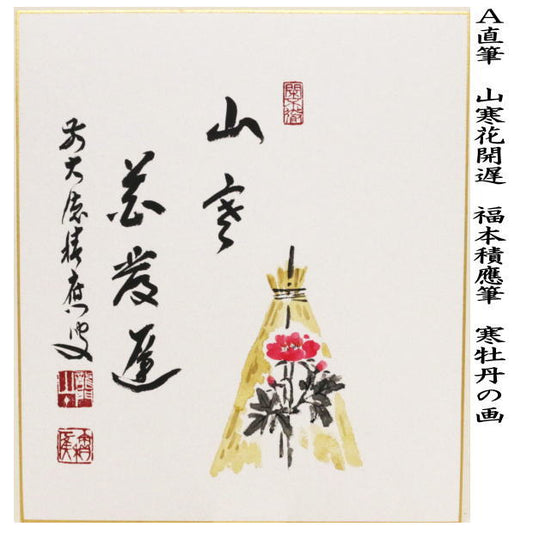 A直筆 山寒花開遅 福本積應筆 寒牡丹の画
山寒
花發遅
前大徳積應叟